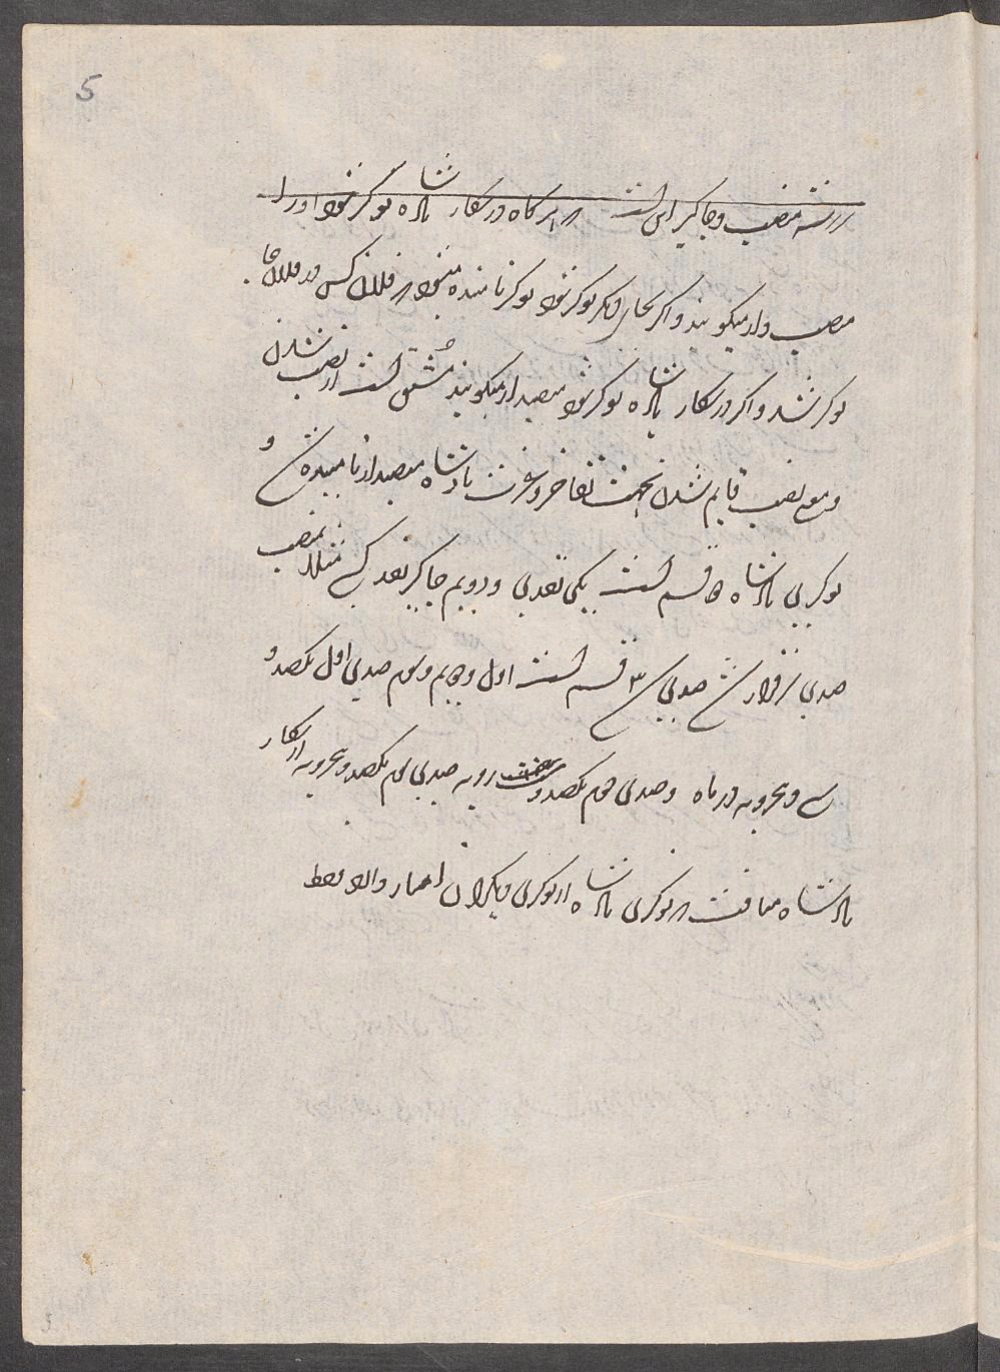 5
سررشته منصب و جاگیر این است که هرکاه در سرکار پادشاه نوکر شود اورا
منصب دار میکویند و اکر بجای دیکر نوکر شود نوکر نامیده میشود که فلان کس در فلان جا
نوکر شد و اکر در سرکار پادشاه نوکر شود منصبدار میکویند مشتق است از نصب شدن
و معنی نصب قایم شدن بجهت تفاخر و عزت پادشاه منصبدار نامیده ش و
نوکریی پادشاه دو قسم است یکی نقدیی و دویم جاکیر نقدی کسی مثلا منصب
صدی سرفراز ش صدیی ۳ قسم است اول و دویم و سوم صدیی اول یکصد و
سی و پنج روپیه در ماه و صدی دوم یکصد و بیست روپیه صدیی سوم یکصد و پنج روپیه از سرکار
پادشاه میافت که نوکری پادشاه از نوکری دیکران اعتبار دارد فقط